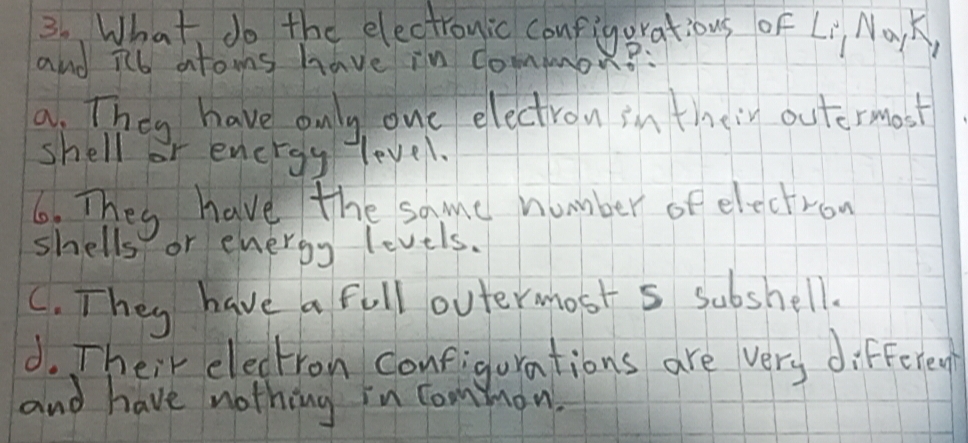 3. What do the electronic configurations of Li, Na, K,
and Rb atoms have in common?:
a. They have only one electron in their outermost
shell or energy level.
b. They have the same number of electron
shells or energy levels.
c. They have a full outermost s subshell.
d. Their electron configurations are very different
and have nothing in common.